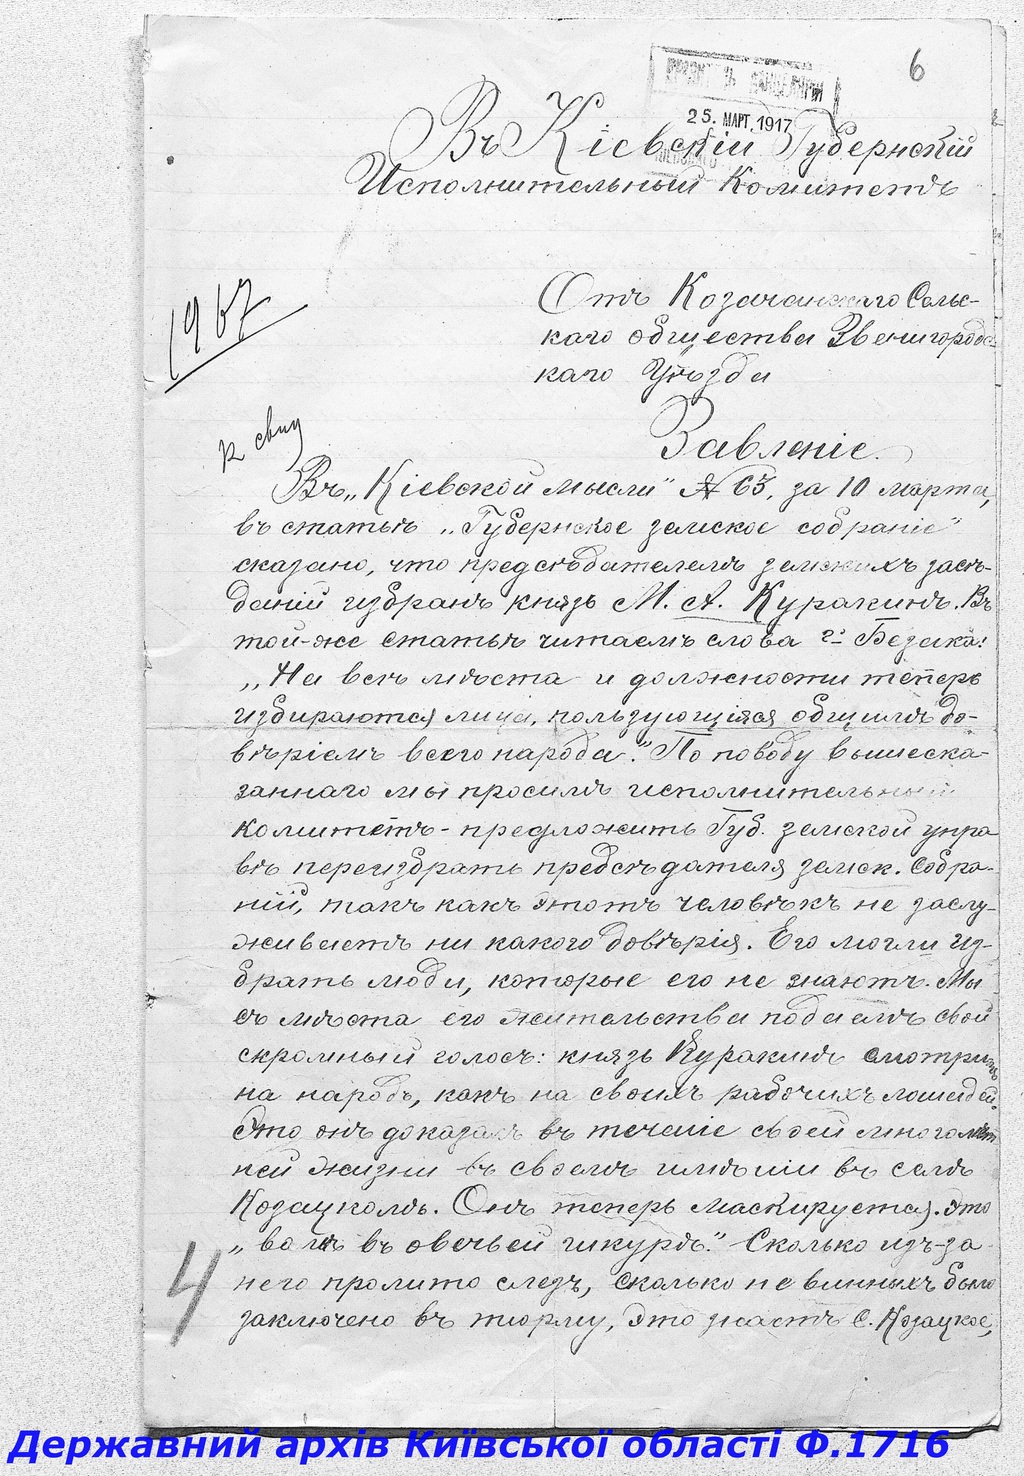 6
25. МАРТ. 1917
Въ Кіевскій Губернскій
Исполнительный Комитетъ
1967
Отъ Козачанскаго Сельс-
каго общества Звенигородс-
каго Уѣзда
к свид
Заявленіе.
Въ „Кіевской мысли" № 63, за 10 марта,
въ статьѣ „Губернское земское собраніе"
сказано, что предсѣдателемъ земскихъ засѣ-
даній избранъ князь М. А. Куракинъ. Въ
той-же статьѣ читаемъ слова г. Безака:
„На всѣ мѣста и должности теперь
избираются лица, пользующіяся общимъ до-
вѣріемъ всего народа." По поводу вышеска-
заннаго мы просимъ исполнительный
комитетъ - предложить Губ. земской упра-
вѣ переизбрать предсѣдателя земск. собра-
ній, такъ какъ этотъ человѣкъ не заслу-
живаетъ ни какого довѣрія. Его могли из-
брать люди, которые его не знаютъ. Мы
съ мѣста его жительства подаемъ свой
скромный голосъ: князь Куракинъ смотритъ
на народъ, какъ на своихъ рабочихъ лошадей.
Это онъ доказалъ въ теченіе своей многолѣт
ней жизни въ своемъ имѣніи въ селѣ
Козацкомъ. Онъ теперь маскируется. Это
„волкъ въ овечьей шкурѣ." Сколько изъ-за
него пролито слезъ, сколько не винныхъ было
заключено въ тюрму, это знаетъ с. Козацкое,
4
Державний архів Київської області Ф.1716